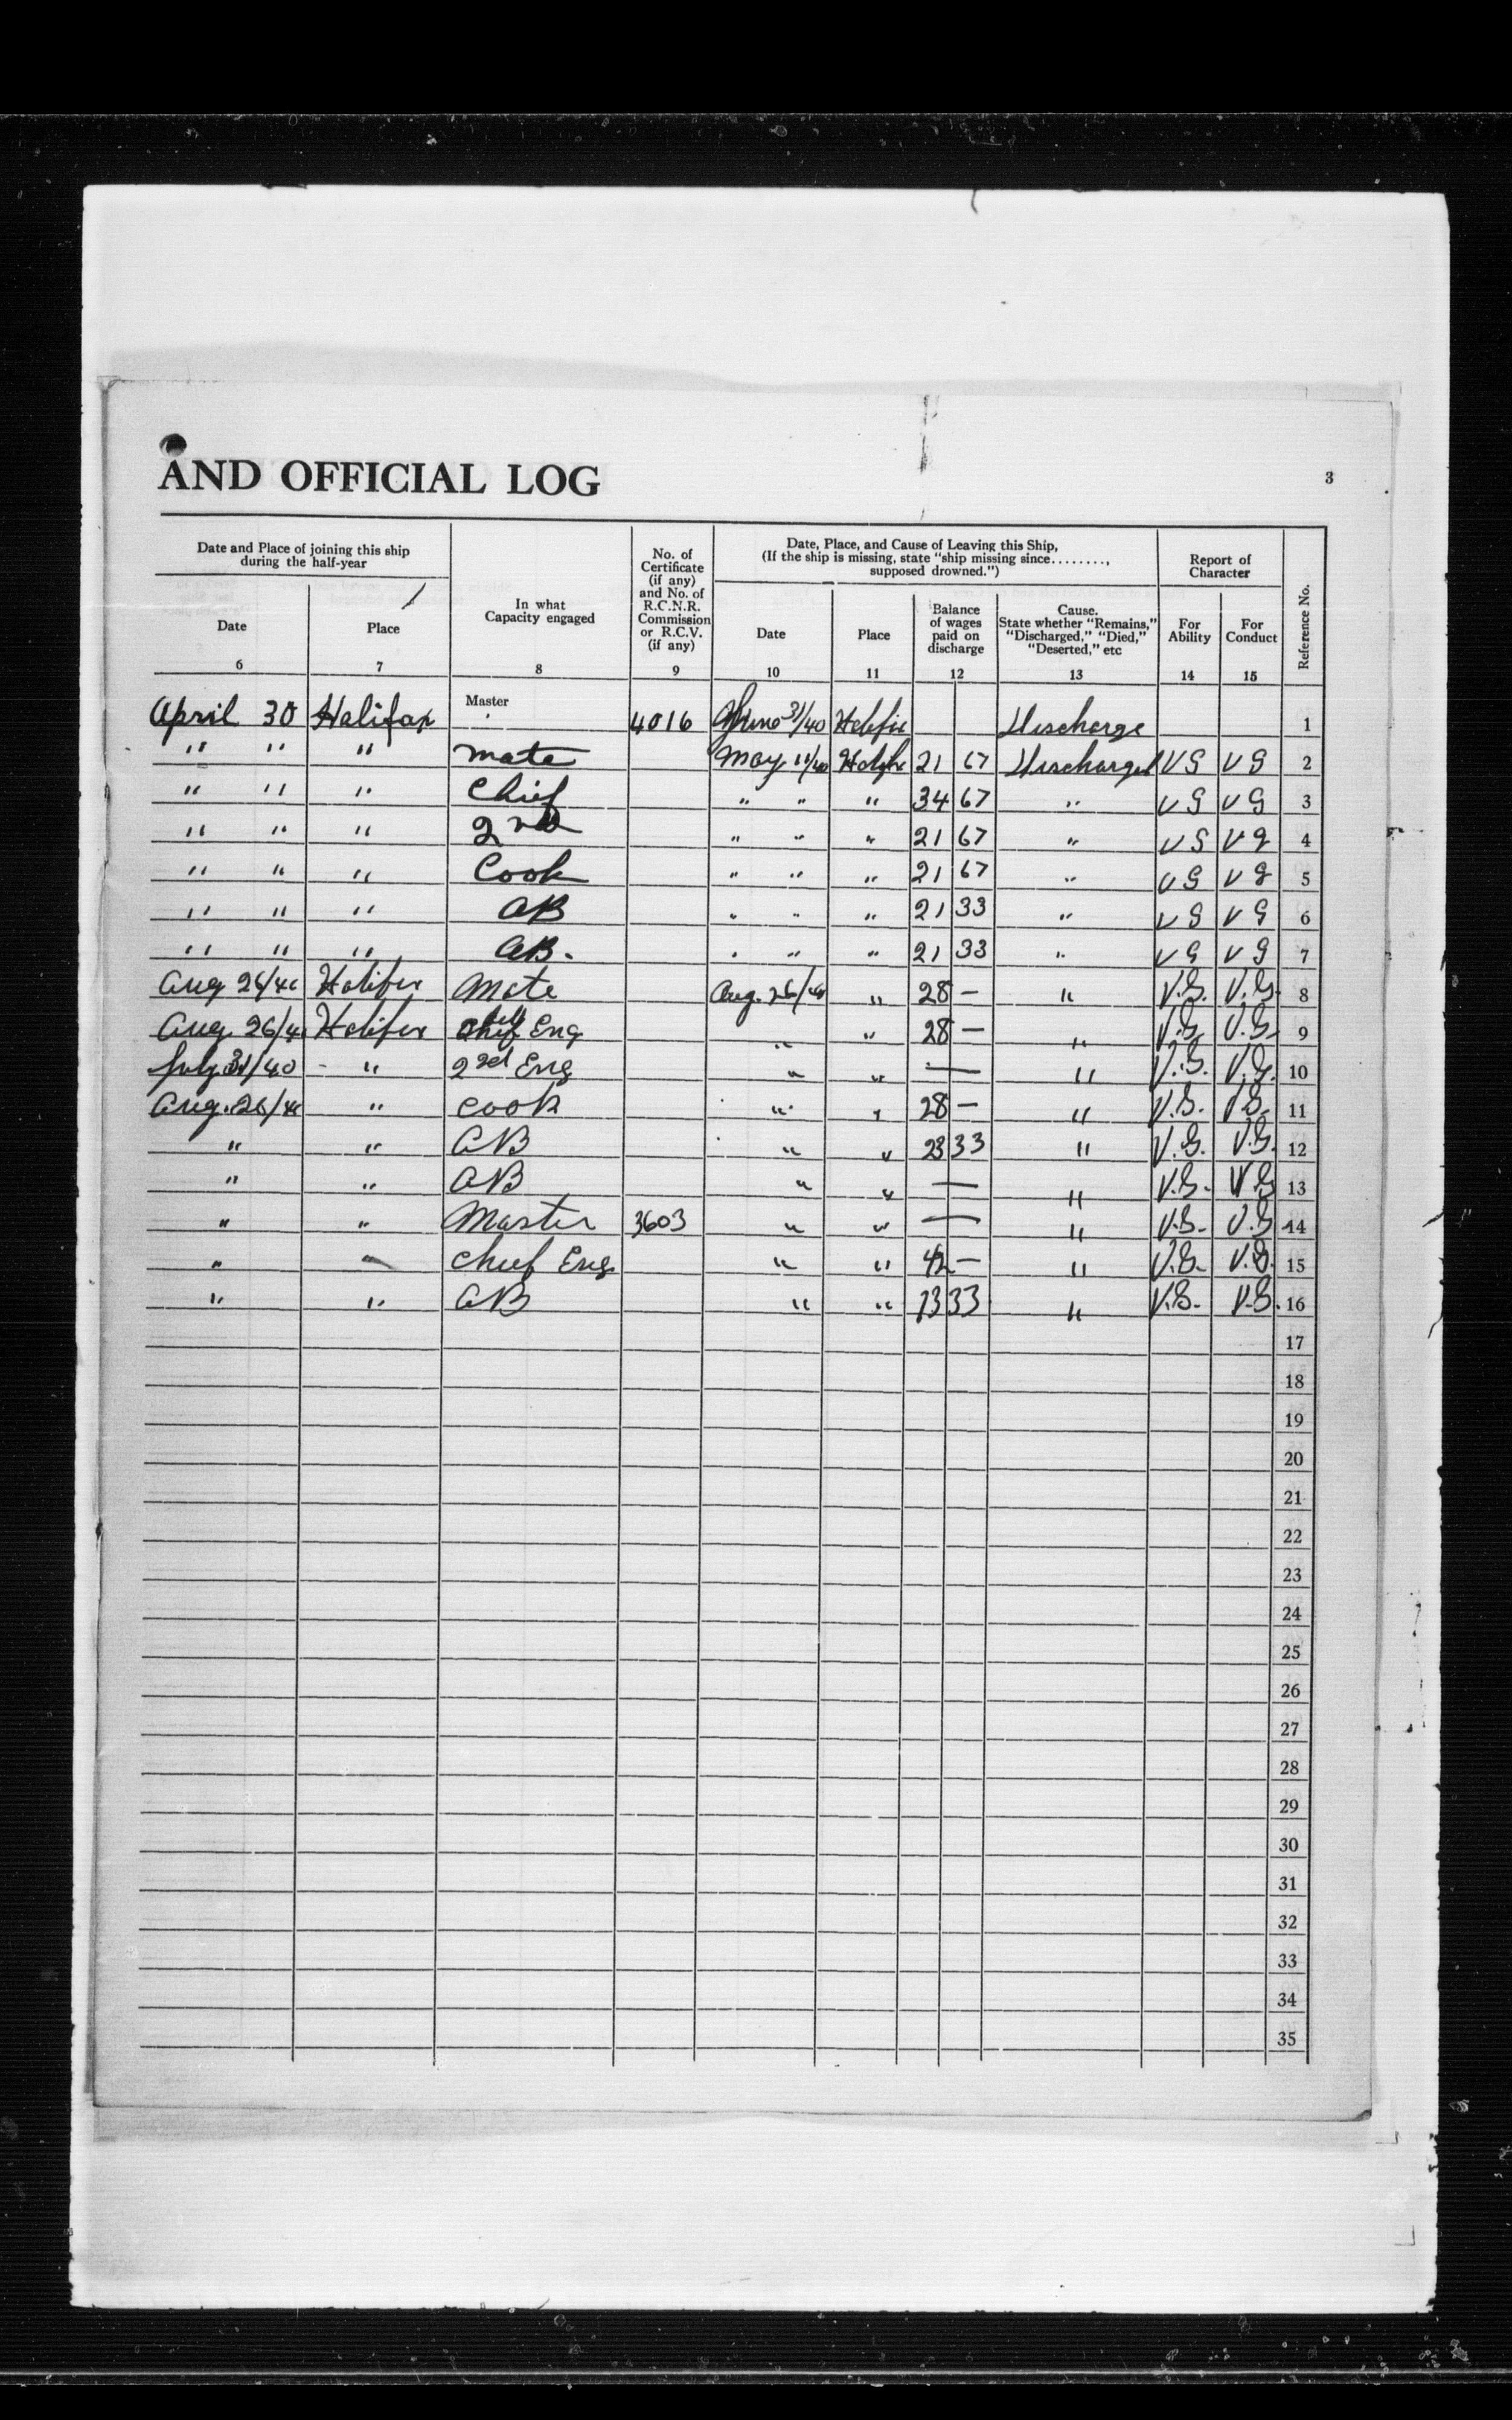 AND OFFICIAL LOG
3
Date and Place of joining this ship
during the half-year
Date
6
Place
7
In what
Capacity engaged
8
No. of
Certificate
(if any)
and No. of
R.C.N.R.
Commission
or R.C.V.
(if any)
9
Date, Place, and Cause of Leaving this Ship,
(If the ship is missing, state "ship missing since........,
supposed drowned.")
Date
10
Place
11
Balance
of wages
paid on
discharge
12
Cause.
State whether "Remains,"
"Discharged," "Died,"
"Deserted," etc
13
Report of
Character
For
Ability
14
For
Conduct
15
Reference No.
April 30 Halifax Master 4016 31/40 Halifax Discharge 1
" " " Mate May 11/40 Halifx 21 67 Discharged VG VG 2
" " " Chief " " " 34 67 " VG VG 3
" " " 2nd " " " 21 67 " VG VG 4
" " " Cook " " " 21 67 " VG VG 5
" " " AB " " " 21 33 " VG VG 6
" " " AB. " " " 21 33 " VG VG 7
Aug 26/40 Halifax Mate Aug. 26/40 " 28 — " V.G. V.G. 8
Aug 26/40 Halifax Eng " " 28 — " V.G. V.G. 9
July 31/40 - " 2nd Eng " " — " V.G. V.G. 10
Aug. 26/40 " Cook " " 28 — " V.G. V.G. 11
" " AB " " 23 33 " V.G. V.G. 12
" " AB " " — " V.G. V.G 13
" " Master 3603 " " — " V.G. V.G 14
" " Chief Eng " " 42 — " V.G. V.G. 15
" " AB " " 33 " V.G. V.G. 16
17
18
19
20
21
22
23
24
25
26
27
28
29
30
31
32
33
34
35